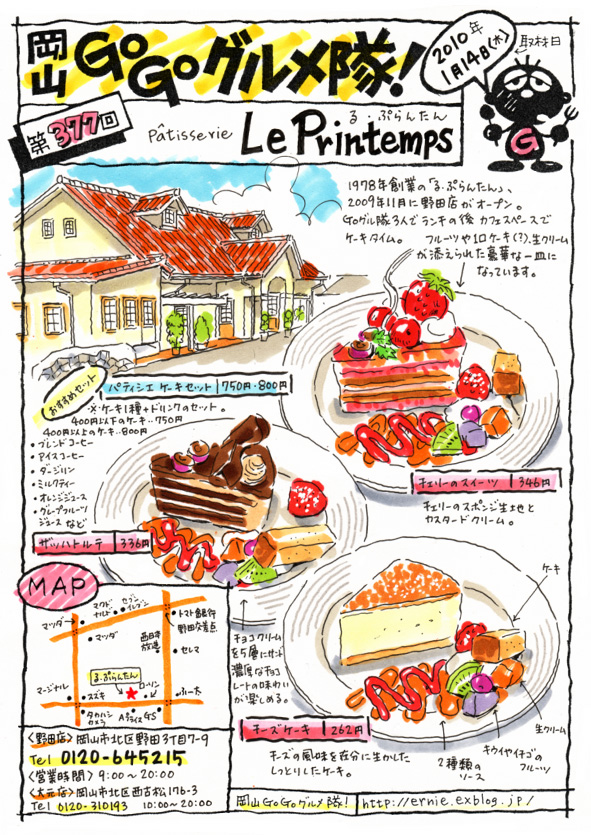 岡山 GoGoグルメ隊!
2010年
1月14日(木)
取材日
G
第377回
Pâtisserie Le Printemps
る・ぷらんたん
1978年創業の「る・ぷらんたん」、
2009年11月に野田店がオープン。
GoGoグル隊3人でランチの後 カフェスペースで
ケーキタイム。
フルーツや1口ケーキ(?)、生クリーム
が添えられた豪華な一皿に
なっています。
おすすめセット
パティシエ ケーキセット 750円・800円
※ケーキ1種+ドリンクのセット。
400円以下のケーキ‥750円
400円以上のケーキ‥800円
・ブレンドコーヒー
・アイスコーヒー
・ダージリン
・ミルクティー
・オレンジジュース
・グレープフルーツ
ジュース など
チェリーのスイーツ 346円
チェリーのスポンジ生地と
カスタードクリーム。
ザッハトルテ 336円
チョコクリーム
を5層にサンド
濃厚なチョコ
レートの味わい
が楽しめる。
MAP
マツダ
マクド
ナルド
セブン
イレブン
トマト銀行
野田交差点
マツダ
西日本
放送
セレマ
る・ぷらんたん
マージナル
スズキ
ローソン
タカハシ
カメラ
Aプライス
GS
チーズケーキ 262円
チーズの風味を存分に生かした
しっとりしたケーキ。
ケーキ
生クリーム
キウイやイチゴの
フルーツ
2種類の
ソース
〈野田店〉岡山市北区野田3丁目7-9
Tel 0120-645215
〈営業時間〉9:00~20:00
〈大元店〉岡山市北区西古松176-3
Tel 0120-310193 10:00~20:00
岡山GoGoグルメ隊! http://ernie.exblog.jp/